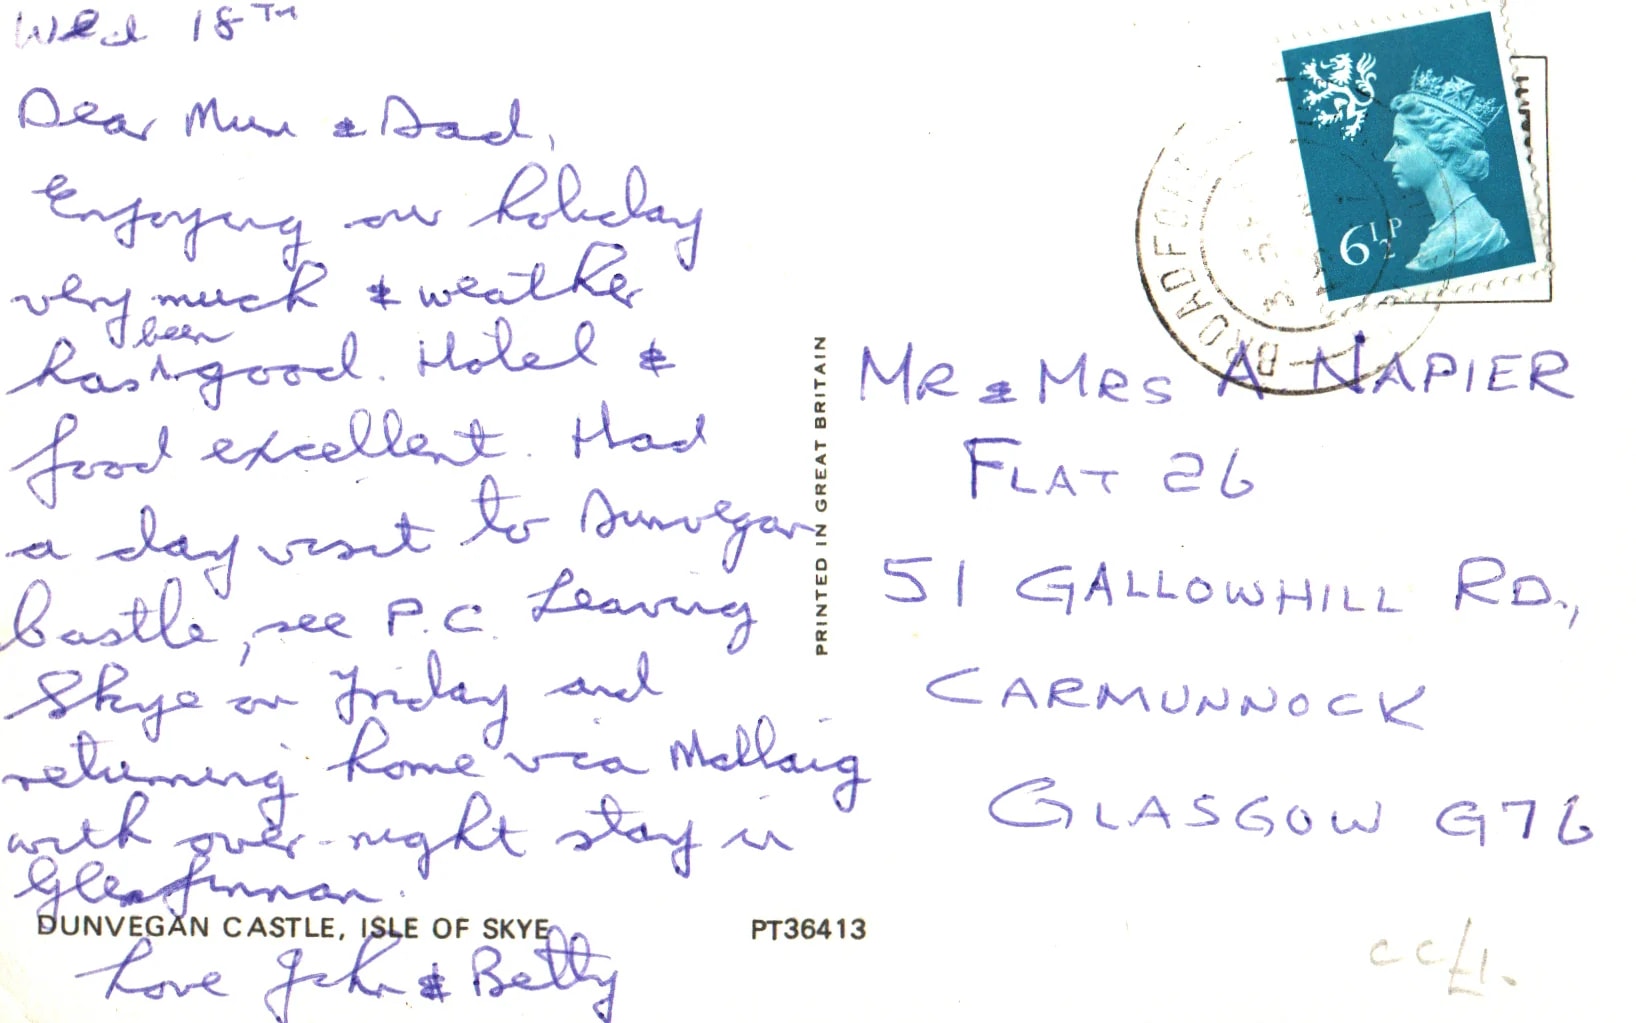 Wed 18TH
Dear Mum & Dad,
Enjoying our holiday
very much & weather
has been good. Hotel &
food excellent. Had
a day visit to Dunvegan
Castle, see P.C. Leaving
Skye on Friday and
returning home via Mallaig
with over-night stay in
Glenfinnan.
DUNVEGAN CASTLE, ISLE OF SKYE
PT36413
Love John & Betty
PRINTED IN GREAT BRITAIN
6½P
BROADFORD
MR & MRS A NAPIER
FLAT 26
51 GALLOWHILL RD.,
CARMUNNOCK
GLASGOW G76
CC £1.